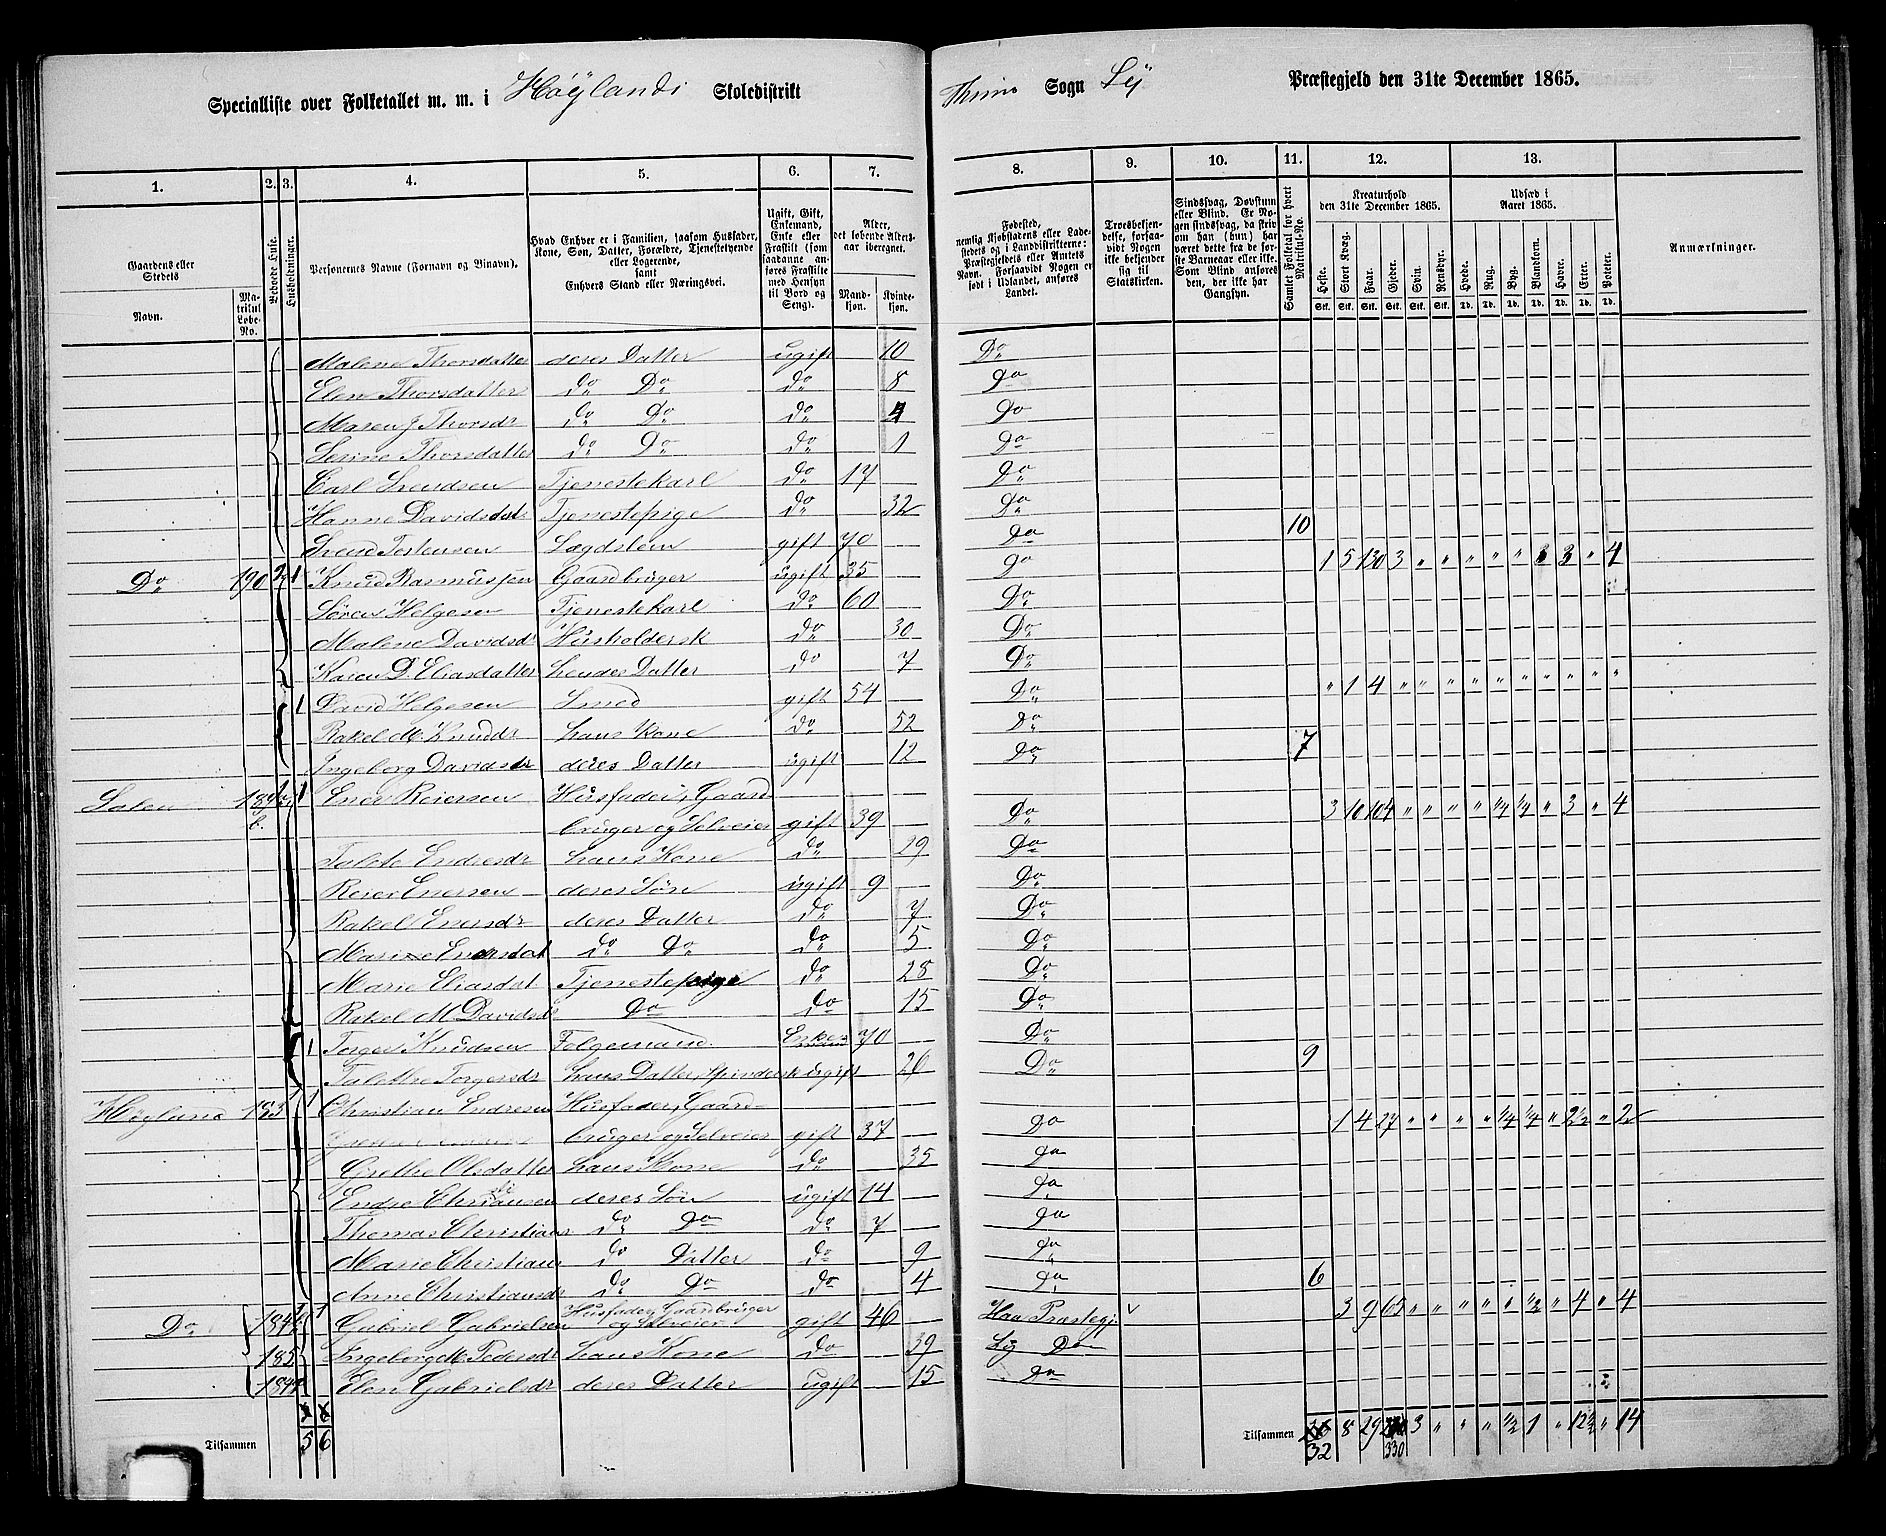 Specialliste over Folketallet m. m. i Høylands Skoledistrikt
Thime Sogn Lÿ Præstegjeld den 31te December 1865.
1. 2. 3. 4. 5. 6. 7.
8. 9. 10. 11. 12. 13.
Gaardens eller Stedets
Navn.
Matrikul Løbe-No.
Beboede Huse.
Husholdninger.
Personernes Navne (Fornavn og Tilnavn).
Hvad Enhver er i Familien, saasom Husfader, Kone, Søn, Datter, Forældre, Tjenestetyende eller Logerende, samt Enhvers Stand eller Næringsvei.
Ugift, Gift, Enkemand, Enke eller Fraskilt (som saadanne anføres Fraskilte med Hensyn til Bord og Seng).
Alder, det løbende Aldersaar iberegnet.
Mandkjøn. Kvindekjøn.
Fødested, nemlig Kjøbstadens eller Ladestedets og i Landdistrikterne: Præstegjeldets eller Amtets Navn. Forsaavidt Nogen er født i Udlandet, anføres Landet.
Troesbekjendelse, forsaavidt Nogen ikke bekjender sig til Statskirken.
Sindssvag, Døvstum eller Blind. Er Nogen sindssvag, da skriv om han (hun) har været dette fra de første Barneaar eller ikke. Som Blind anføres den, der ikke har Gangsyn.
Samlet Folketal for hvert Matrikul-No.
Kreaturhold den 31te December 1865.
Heste. Stort Kvæg. Faar. Gjeder. Sviin. Rensdyr.
Udsæd i Aaret 1865.
Hvede. Rug. Byg. Blandkorn. Havre. Erter. Poteter.
Anmærkninger.
Malene Thorsdatter deres Datter ugift 10 Do
Elen Thorsdatter do Do do 8 Do
Maren J Thorsdr do Do do 4 Do
Serine Thorsdatter do Do do 1 Do
Carl Svendsen Tjenestekarl do 17 Do
Hanne Davidsdatr Tjenestepige do 32 Do
Svend Tostensen Lægdslem gift 70 Do 10
Do 190 2 1 Knud Rasmussen Gaardbruger ugift 35 Do 1 5 130 3 " " " " " " 3 " 4
Søren Helgesen Tjenestekarl do 60 Do
Malene Davidsdr Husholdersk do 30 Do
Karen D. Eliasdatter hendes Datter do 7 Do
1 David Helgesen Smed gift 54 Do " 1 4 " " " " " " " " " "
Rakel M. Knudsdr hans Kone do 52 Do
Ingeborg Davidsdr deres Datter ugift 12 Do 7
1 Ener Reiersen Husfader, Gaard-
bruger og Selveier gift 39 Do 3 10 104 " " " " 1/4 1/4 " 3 " 4
Talete Endresdr hans Kone do 29 Do
Reier Enersen deres Søn ugift 9 Do
Rakel Enersdr deres Datter do 7 Do
Marine Enersdat do Do do 5 Do
Marie Eliasdat Tjenestepige do 28 Do
Rakel M Davidsdr Do do 15 Do
1 Torger Knudsen Følgemand Enkem 70 Do
Talethe Torgersdr hans Datter, Spindersk ugift 26 Do 9
Høyland 183 1 1 Christian Endresen Husfader, Gaard-
bruger og Selveier gift 37 Do 1 4 27 " " " " 1/4 1/4 " 2 1/2 " 2
Grethe Olsdatter hans Kone do 35 Do
Endre Christiansen deres Søn ugift 14 Do
Thomas Christians do Do do 7 Do
Marie Christians do Datter do 9 Do
Anne Christiansdr do Do do 4 Do 6
Do 184 1 1 Gabriel Gabrielsen Husfader, Gaardbruger og Selveier gift 46 Haa Præstegj. 3 9 65 " " " " " 1/2 " 4 " 4
185 Ingeborg M. Pedersdt hans Kone do 39 Lÿ Do
Elen Gabrielsdr deres Datter ugift 15 Do
Tilsammen 5 6
Tilsammen 32 8 29 330 3 " " " 1/2 1 " 12 1/2 " 14